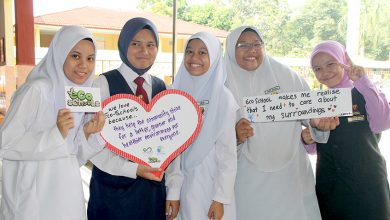 Go
School
we love
Go-Schools
because...
they help the community strive
for a better, greener and
healthier environment for
everyone
Go School makes me realise
that I need to care about
my surroundings